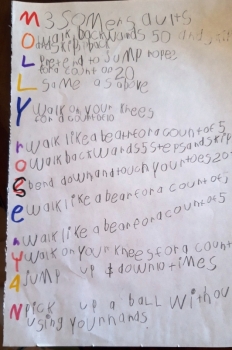 M 3 SOMersaults
O walk backwards 50 and skip
skip back
L Pretend to JUMP ropes
for a count on 20
L same as above
Y walk on your knees
for a count of 10
r walk like a bear for a count of 5
O walk backwards 5 steps and skip
S bend down and touch your toes 20
e walk like a bear for a count of 5
n walk like a bear for a count of 5
Y walk on your knees for a count
A jump up & down 10 times
N pick up a ball withou
using your hands